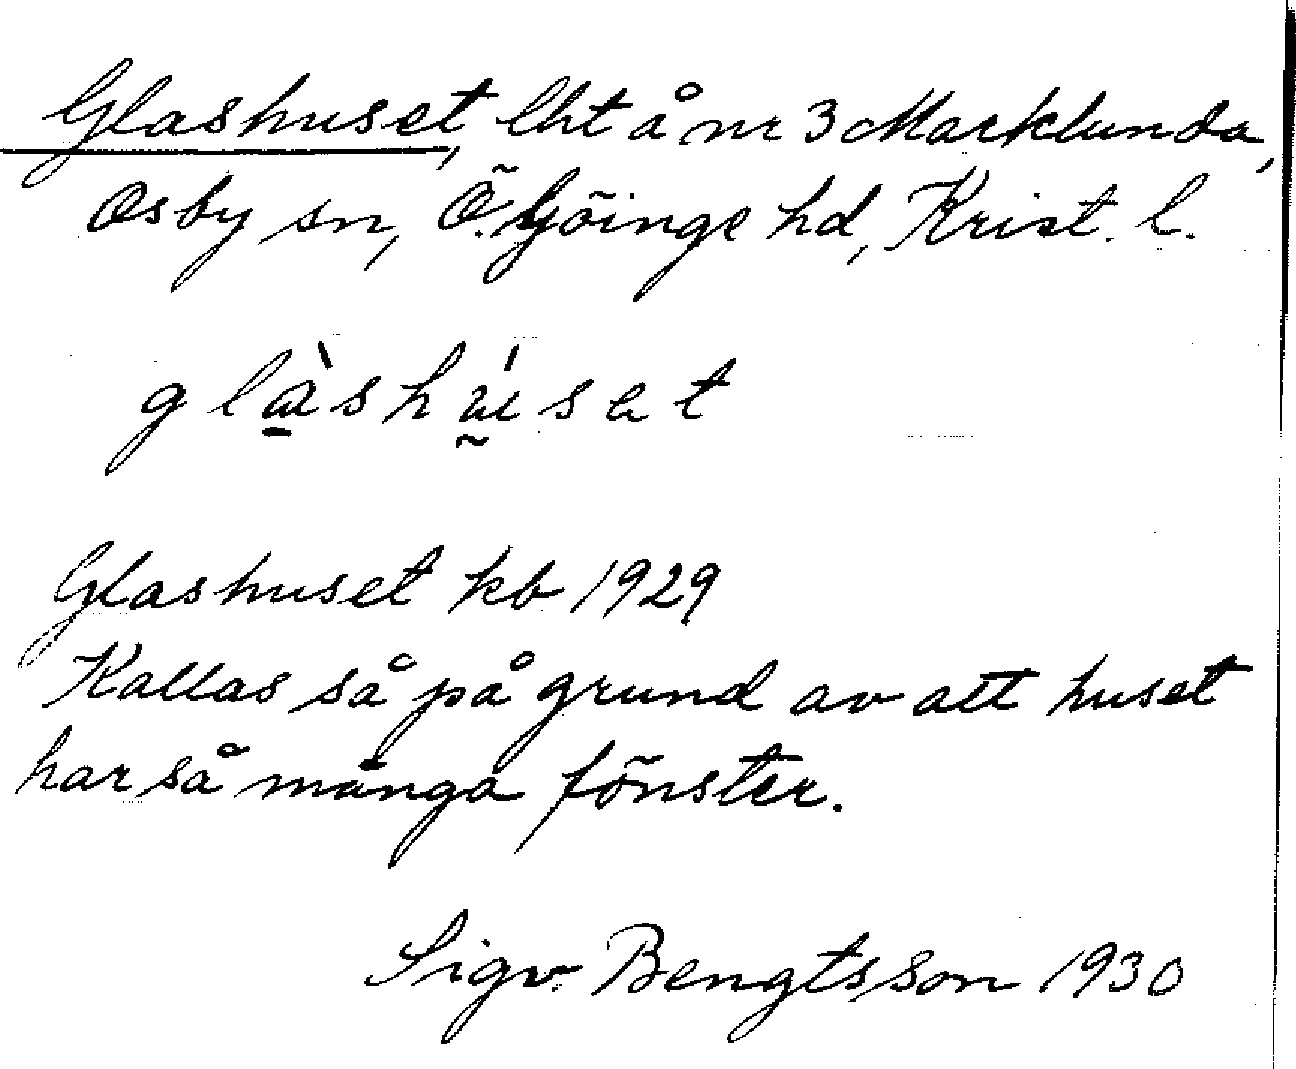 Glashuset, lht å nr 3 Marklunda,
Osby sn, Ö. Göinge hd, Krist. l.
glàshúset
Glashuset kb 1929
Kallas så på grund av att huset
har så många fönster.
Sigv. Bengtsson 1930